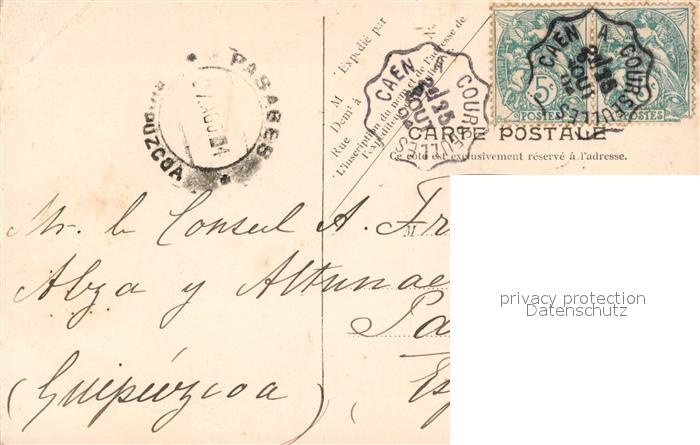 PASAGES
GUIPUZCOA
M
Expédié par
Demt à
Rue
No
L'inscription du nom et de l'adresse de
l'expéditeur est
CAEN A COURSEULLES
CAEN A COURSEULLES
5c
POSTES
POSTES
CARTE POSTALE
Ce côté est exclusivement réservé à l'adresse.
Mr. le Consul A. Fr
M
Alza y Altunae
Pa
(Guipúzcoa) Es
privacy protection
Datenschutz